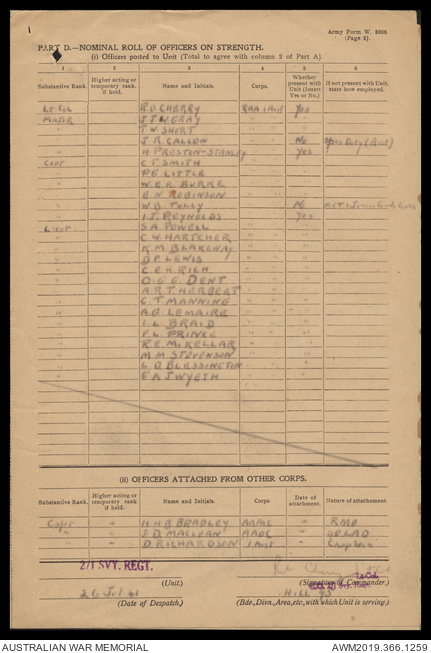 Army Form W. 3008
(Page 2).
PART D.—NOMINAL ROLL OF OFFICERS ON STRENGTH.
(i) Officers posted to Unit (Total to agree with column 2 of Part A).
1 2 3 4 5 6
Substantive Rank. Higher acting or temporary rank if held. Name and Initials. Corps. Whether present with Unit (Insert Yes or No.) If not present with Unit, state how employed.
Lt Col R.G. CHERRY RAA Yes
Major J.J. WERAY " "
" T.W. SHORT " "
" J.R. CALLOW " No
" H PRESTON-STANLEY " Yes
Capt C.T. SMITH " "
" P.G. LITTLE " "
" W.E.R. BURKE " "
" E.N. ROBINSON " "
" W.B. TULLY " No
" I.J. REYNOLDS " Yes
Lieut S.A. POWELL " "
" C.W. HARTCHER " "
" K.M. BLAKEWAY " "
" D.P. LEWIS " "
" C.E.H. RICH " "
" O.G.G. DENT " "
" A.R.T. HERBERT " "
" C.T. MANNING " "
" A.G. LEMAIRE " "
" I.L. BRAID " "
" F.L. PRINCE " "
" R.E. McKELLAR " "
" M.M. STEVENSON " "
" L.D. BLESSINGTON " "
" G.A.J. WYETH " "
(ii) OFFICERS ATTACHED FROM OTHER CORPS.
Substantive Rank. Higher acting or temporary rank if held. Name and Initials. Corps. Date of attachment. Nature of attachment.
Capt " H.H.B. BRADLEY AAMC " RMO
" " J.D. MACLEAN AAOC " LAD
" D. RICHARDSON "
2/1 SVY. REGT.
(Unit.) (Signature of Commander.)
Lt Col
26 Jul 41 HILL 95
(Date of Despatch.) (Bde., Divn., Area, etc., with which Unit is serving.)
AUSTRALIAN WAR MEMORIAL AWM2019.366.1259